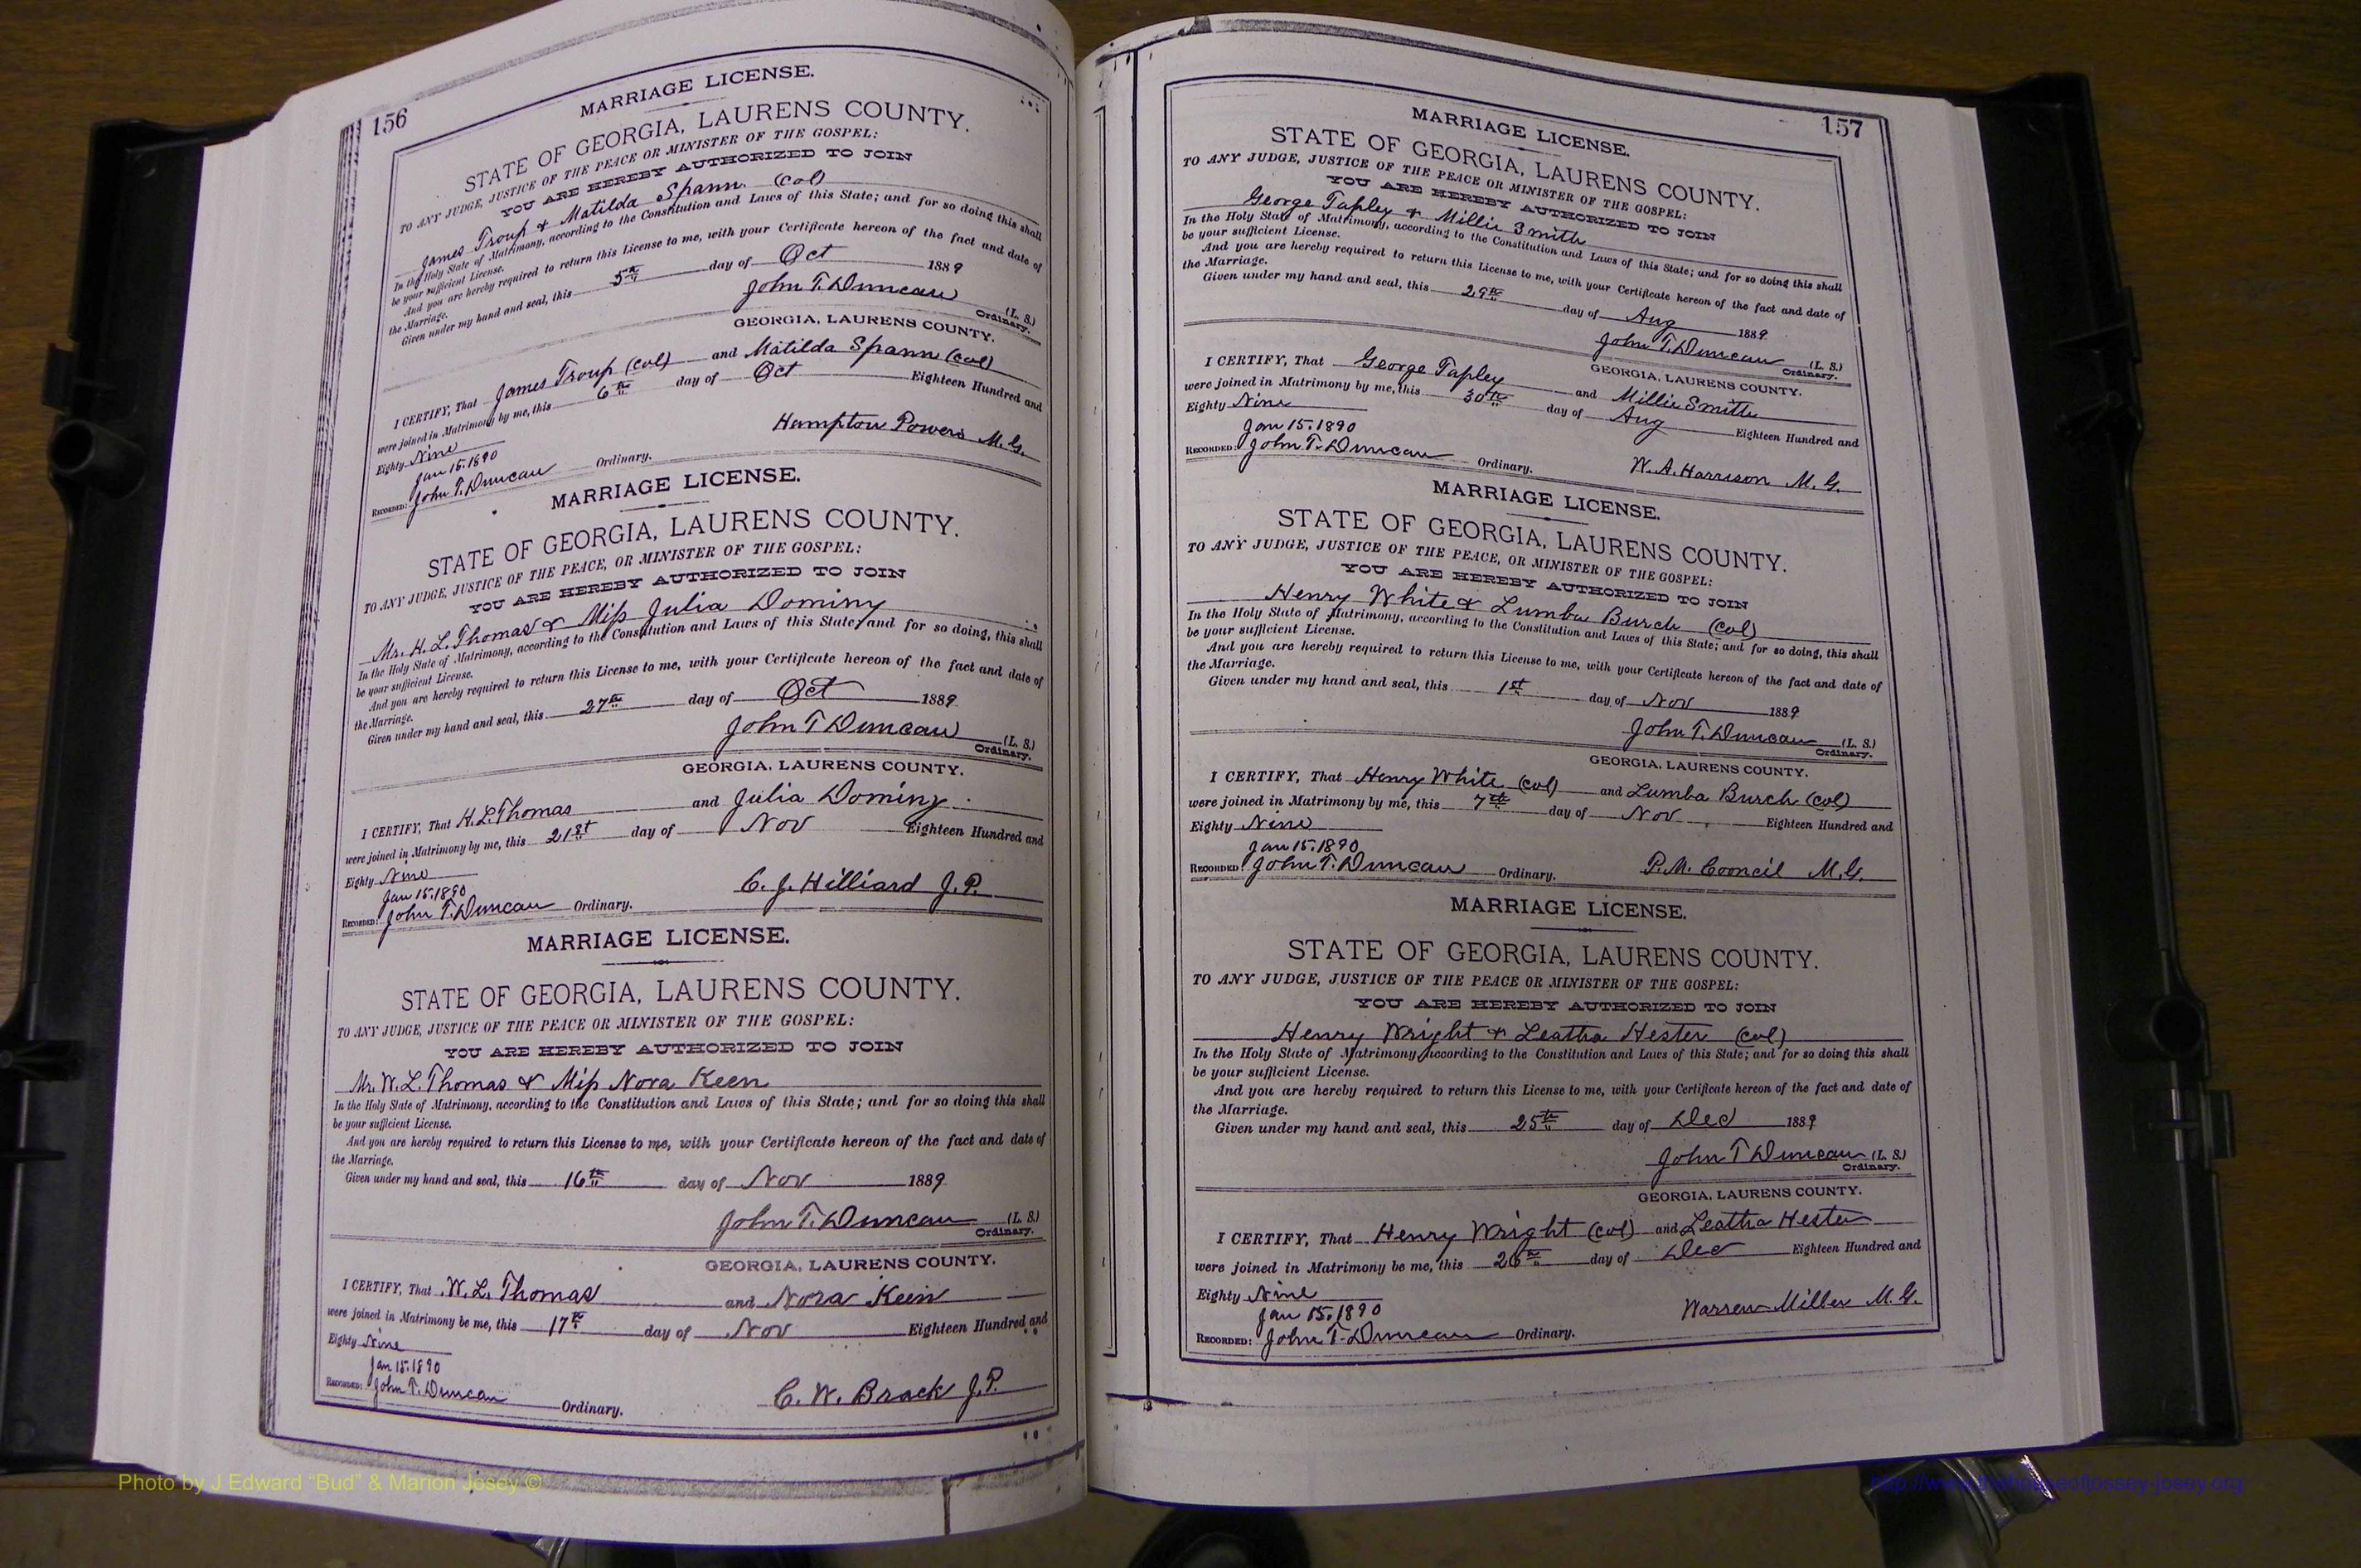 156
MARRIAGE LICENSE.
STATE OF GEORGIA, LAURENS COUNTY.
TO ANY JUDGE, JUSTICE OF THE PEACE OR MINISTER OF THE GOSPEL:
YOU ARE HEREBY AUTHORIZED TO JOIN
James Troup & Matilda Spann. (Col)
In the Holy State of Matrimony, according to the Constitution and Laws of this State; and for so doing this shall
be your sufficient License.
And you are hereby required to return this License to me, with your Certificate hereon of the fact and date of
the Marriage.
Given under my hand and seal, this 5th day of Oct 1889
John T. Duncan (L. S.)
Ordinary.
GEORGIA, LAURENS COUNTY.
I CERTIFY, That James Troup (Col) and Matilda Spann (Col)
were joined in Matrimony by me, this 6th day of Oct Eighteen Hundred and
Eighty Nine
Hampton Powers M. G.
Jan 15. 1890
RECORDED: John T. Duncan Ordinary.
MARRIAGE LICENSE.
STATE OF GEORGIA, LAURENS COUNTY.
TO ANY JUDGE, JUSTICE OF THE PEACE, OR MINISTER OF THE GOSPEL:
YOU ARE HEREBY AUTHORIZED TO JOIN
Mr. H. L. Thomas & Miss Julia Dominy
In the Holy State of Matrimony, according to the Constitution and Laws of this State; and for so doing, this shall
be your sufficient License.
And you are hereby required to return this License to me, with your Certificate hereon of the fact and date of
the Marriage.
Given under my hand and seal, this 27th day of Oct 1889
John T Duncan (L. S.)
Ordinary.
GEORGIA, LAURENS COUNTY.
I CERTIFY, That H. L. Thomas and Julia Dominy
were joined in Matrimony by me, this 21st day of Nov Eighteen Hundred and
Eighty Nine
Jan 15. 1890 C. J. Hilliard J. P.
RECORDED: John T. Duncan Ordinary.
MARRIAGE LICENSE.
STATE OF GEORGIA, LAURENS COUNTY.
TO ANY JUDGE, JUSTICE OF THE PEACE OR MINISTER OF THE GOSPEL:
YOU ARE HEREBY AUTHORIZED TO JOIN
Mr. W. L. Thomas & Miss Nora Keen
In the Holy State of Matrimony, according to the Constitution and Laws of this State; and for so doing this shall
be your sufficient License.
And you are hereby required to return this License to me, with your Certificate hereon of the fact and date of
the Marriage.
Given under my hand and seal, this 16th day of Nov 1889
John T. Duncan (L. S.)
Ordinary.
GEORGIA, LAURENS COUNTY.
I CERTIFY, That W. L. Thomas and Nora Keen
were joined in Matrimony be me, this 17th day of Nov Eighteen Hundred and
Eighty Nine
Jan 15. 1890
RECORDED: John T. Duncan Ordinary. C. W. Brack J. P.
157
MARRIAGE LICENSE.
STATE OF GEORGIA, LAURENS COUNTY.
TO ANY JUDGE, JUSTICE OF THE PEACE OR MINISTER OF THE GOSPEL:
YOU ARE HEREBY AUTHORIZED TO JOIN
George Tapley & Millie Smith
In the Holy State of Matrimony, according to the Constitution and Laws of this State; and for so doing this shall
be your sufficient License.
And you are hereby required to return this License to me, with your Certificate hereon of the fact and date of
the Marriage.
Given under my hand and seal, this 29th day of Aug 1889
John T. Duncan (L. S.)
Ordinary.
GEORGIA, LAURENS COUNTY.
I CERTIFY, That George Tapley and Millie Smith
were joined in Matrimony by me, this 30th day of Aug Eighteen Hundred and
Eighty Nine
Jan 15. 1890
RECORDED: John T. Duncan Ordinary. W. A. Harrison M. G.
MARRIAGE LICENSE.
STATE OF GEORGIA, LAURENS COUNTY.
TO ANY JUDGE, JUSTICE OF THE PEACE, OR MINISTER OF THE GOSPEL:
YOU ARE HEREBY AUTHORIZED TO JOIN
Henry White & Lumba Burch (Col)
In the Holy State of Matrimony, according to the Constitution and Laws of this State; and for so doing, this shall
be your sufficient License.
And you are hereby required to return this License to me, with your Certificate hereon of the fact and date of
the Marriage.
Given under my hand and seal, this 1st day of Nov 1889
John T. Duncan (L. S.)
Ordinary.
GEORGIA, LAURENS COUNTY.
I CERTIFY, That Henry White (Col) and Lumba Burch (Col)
were joined in Matrimony by me, this 7th day of Nov Eighteen Hundred and
Eighty Nine
Jan 15. 1890
RECORDED: John T. Duncan Ordinary. P. M. Cooncil M. G.
MARRIAGE LICENSE.
STATE OF GEORGIA, LAURENS COUNTY.
TO ANY JUDGE, JUSTICE OF THE PEACE OR MINISTER OF THE GOSPEL:
YOU ARE HEREBY AUTHORIZED TO JOIN
Henry Wright & Leatha Hester (Col)
In the Holy State of Matrimony, according to the Constitution and Laws of this State; and for so doing this shall
be your sufficient License.
And you are hereby required to return this License to me, with your Certificate hereon of the fact and date of
the Marriage.
Given under my hand and seal, this 25th day of Dec 1889
John T Duncan (L. S.)
Ordinary.
GEORGIA, LAURENS COUNTY.
I CERTIFY, That Henry Wright (Col) and Leatha Hester
were joined in Matrimony be me, this 26th day of Dec Eighteen Hundred and
Eighty Nine
Jan 15. 1890 Warren Miller M. G.
RECORDED: John T. Duncan Ordinary.
Photo by J Edward “Bud” & Marion Josey ©
http://www.thehouseofjossey-josey.org